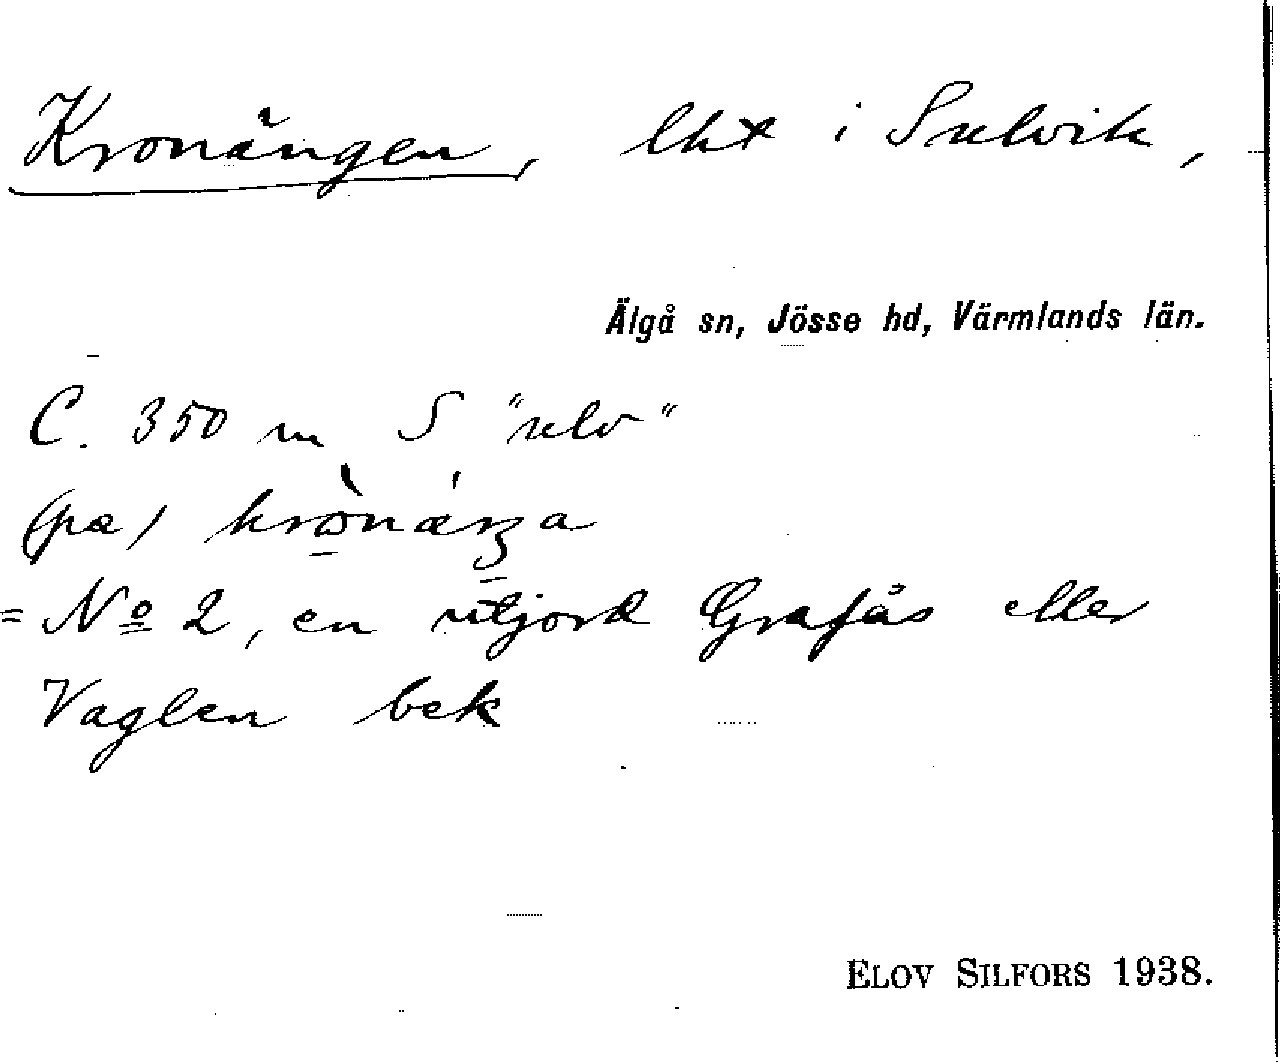 Kronängen, lht i Sulvik,
Älgå sn, Jösse hd, Värmlands län.
C. 350 m S "ulv"
(pa) krònáŋa
= No 2, en utjord Grafås eller
Vaglen bek
ELOV SILFORS 1938.